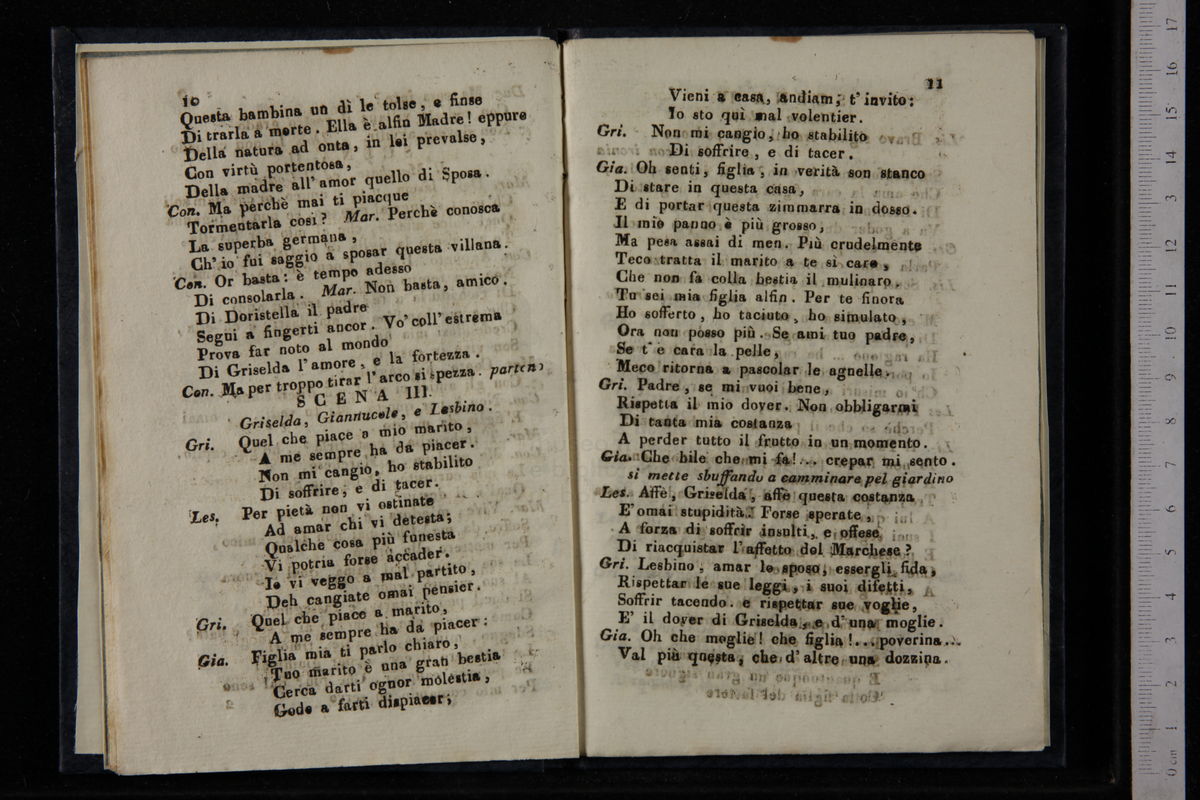 10
Questa bambina un dì le tolse, e finse
Di trarla a morte. Ella è alfin Madre! eppure
Della natura ad onta, in lei prevalse,
Con virtù portentosa,
Della madre all'amor quello di Sposa.
Con. Ma perchè mai ti piacque
Tormentarla così? Mar. Perchè conosca
La superba germana,
Ch'io fui saggio a sposar questa villana.
Con. Or basta: è tempo adesso
Di consolarla. Mar. Non basta, amico.
Di Doristella il padre
Segui a fingerti ancor. Vo' coll'estrema
Prova far noto al mondo
Di Griselda l'amore, e la fortezza.
Con. Ma per troppo tirar l'arco si spezza. parton
SCENA III.
Griselda, Giannucole, e Lesbino.
Gri. Quel che piace a mio marito,
A me sempre ha da piacer.
Non mi cangio, ho stabilito
Di soffrire, e di tacer.
Les. Per pietà non vi ostinate
Ad amar chi vi detesta;
Qualche cosa più funesta
Vi potria forse accader.
Io vi veggo a mal partito,
Deh cangiate omai pensier.
Gri. Quel che piace a marito,
A me sempre ha da piacer:
Gia. Figlia mia ti parlo chiaro,
Tuo marito è una gran bestia
Cerca darti ognor molestia,
Gode a farti dispiacer;
11
Vieni a casa, andiam, t'invito:
Io sto qui mal volentier.
Gri. Non mi cangio, ho stabilito
Di soffrire, e di tacer.
Gia. Oh senti, figlia, in verità son stanco
Di stare in questa casa,
E di portar questa zimmarra in dosso.
Il mio panno è più grosso,
Ma pesa assai di men. Più crudelmente
Teco tratta il marito a te sì caro,
Che non fa colla bestia il mulinaro.
Tu sei mia figlia alfin. Per te finora
Ho sofferto, ho taciuto, ho simulato,
Ora non posso più. Se ami tuo padre,
Se t'è cara la pelle,
Meco ritorna a pascolar le agnelle.
Gri. Padre, se mi vuoi bene,
Rispetta il mio dover. Non obbligarmi
Di tanta mia costanza
A perder tutto il frutto in un momento.
Gia. Che bile che mi fa!... crepar mi sento.
si mette sbuffando a camminare pel giardino
Les. Affè, Griselda, affè questa costanza
E' omai stupidità. Forse sperate,
A forza di soffrir insulti, e offese
Di riacquistar l'affetto del Marchese?
Gri. Lesbino, amar lo sposo, essergli fida,
Rispettar le sue leggi, i suoi difetti,
Soffrir tacendo. e rispettar sue voglie,
E' il dover di Griselda, e d'una moglie.
Gia. Oh che moglie! che figlia!... poverina...
Val più questa, che d'altre una dozzina.